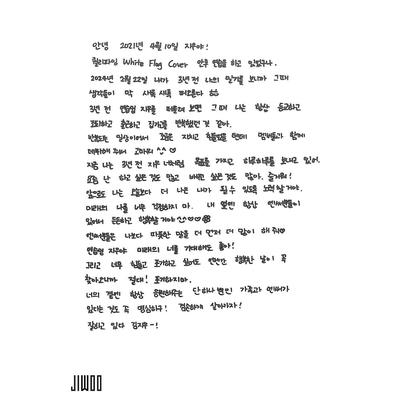 안녕 2021년 4월 10일 지우야!
릴리파일 White Flag Cover 안무 연습을 하고 있겠구나.
2024년 2월 22일 내가 3년 전 나의 일기를 보니까 그때
생각들이 막 새록새록 떠오른다
3년 전 연습생 지우를 떠올려 보면 그때 나는 항상 등교하고
하교하고 출근하고 집가고를 반복했던 것 같아.
반복되는 일상이여서 지치고 힘들었을 텐데 멤버들과 함께
데뷔해 주어 고마워
지금 나는 3년 전 지우 너처럼 가지고 하루하루를 보내고 있어.
요즘 난 하고 싶은 것도 많고 배우고 싶은 것도 많아. 즐거워!
앞으로도 나는 오늘보다 더 나은 내가 될 수 있도록 노력할 거야.
미래의 나를 너무 걱정하지 마. 내 옆엔 항상 언니들이
있어서 든든하고 행복할 거야
언니들은 나보다 따뜻한 말을 더 먼저 더 많이 해 줘
연습생 지우야 미래의 너를 기대해도 좋아!
그리고 너무 힘들고 포기하고 싶어도 언젠간 행복한 날이 꼭
찾아오니까 절대! 포기하지마.
너의 곁엔 항상 응원해주는 단 하나뿐인 가족과 언니가
있다는 것도 꼭 명심하구! 겸손하게 살아가자!
잘하고 있다 김지우-!
JIWOO